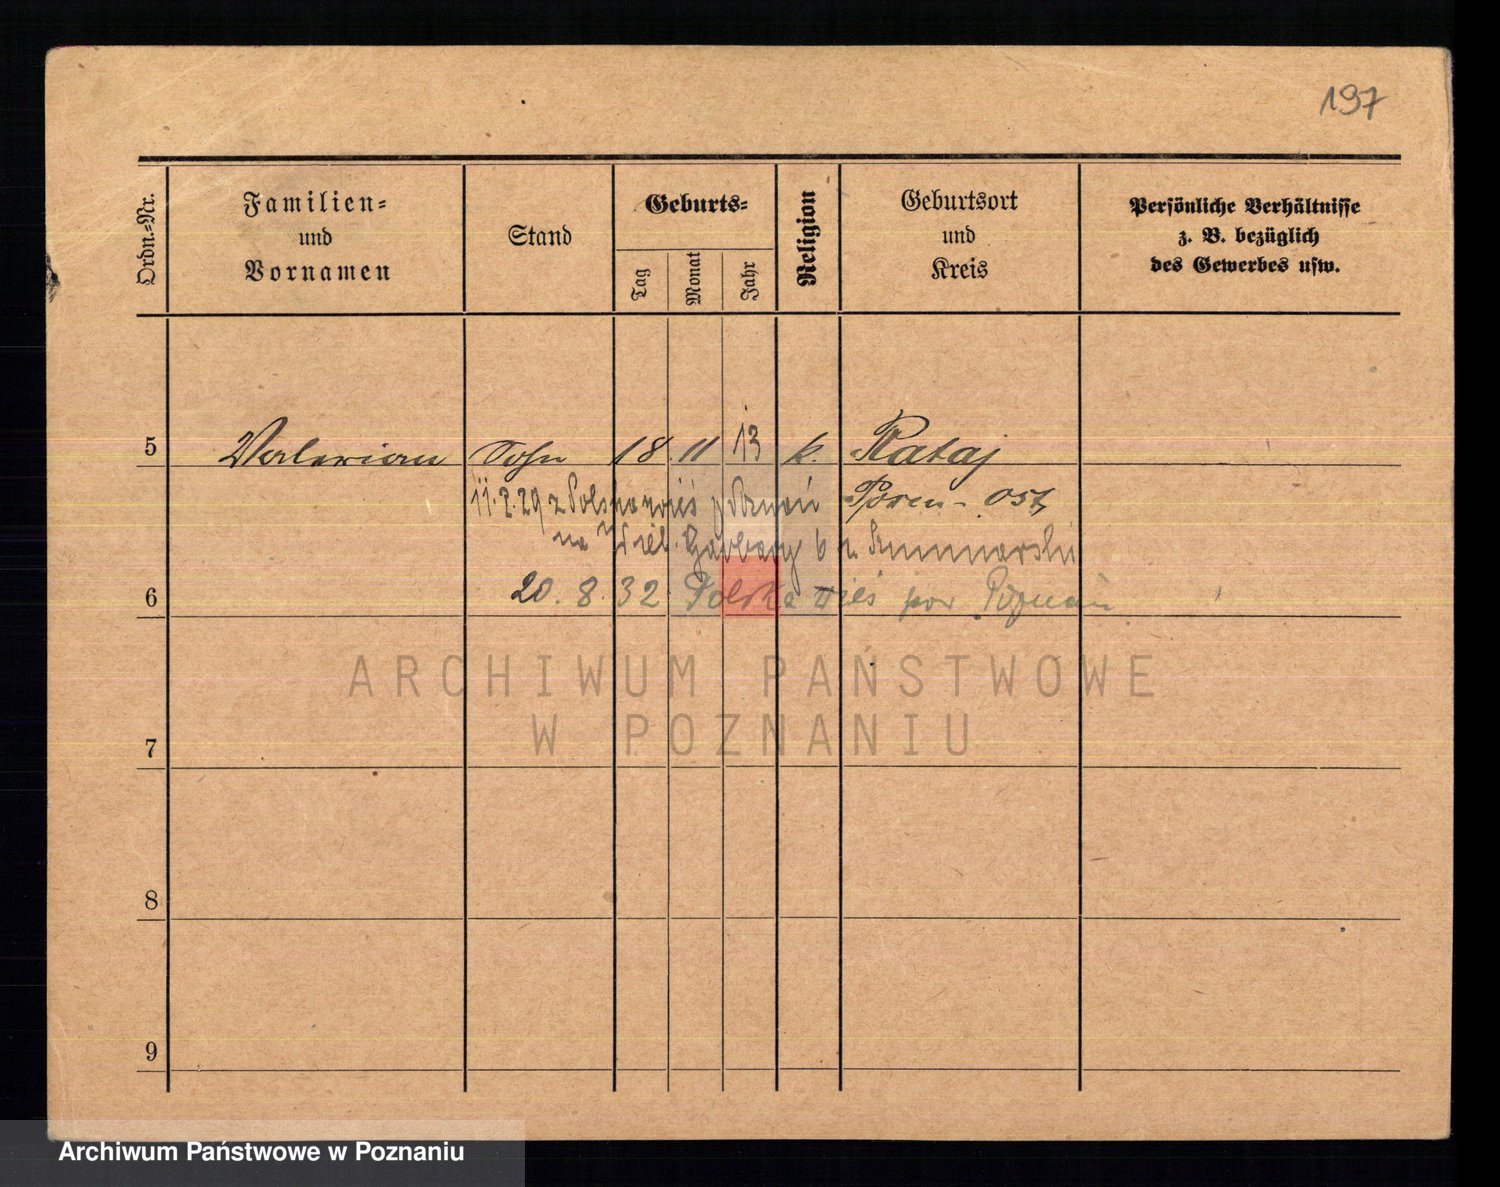 197
Ordn.-Nr.
Familien-
und
Vornamen
Stand
Geburts-
Tag
Monat
Jahr
Religion
Geburtsort
und
Kreis
Persönliche Verhältnisse
z. B. bezüglich
des Gewerbes usw.
5 Valerian Sohn 18 11 13 k. Rataj
Posen-Ost
11.2.29 z Polska wieś p Poznań
na Wiel. Garbary 6
6 20. 8. 32 Polska wieś pow Poznań
ARCHIWUM PAŃSTWOWE
W POZNANIU
7
8
9
Archiwum Państwowe w Poznaniu